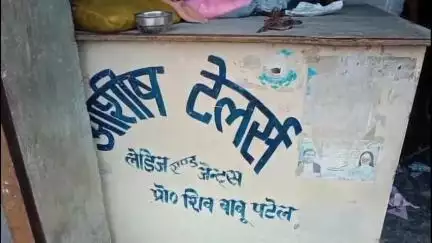 आशिष टेलर्स
लेडिज एण्ड जेन्टस
प्रो० शिव बाबू पटेल